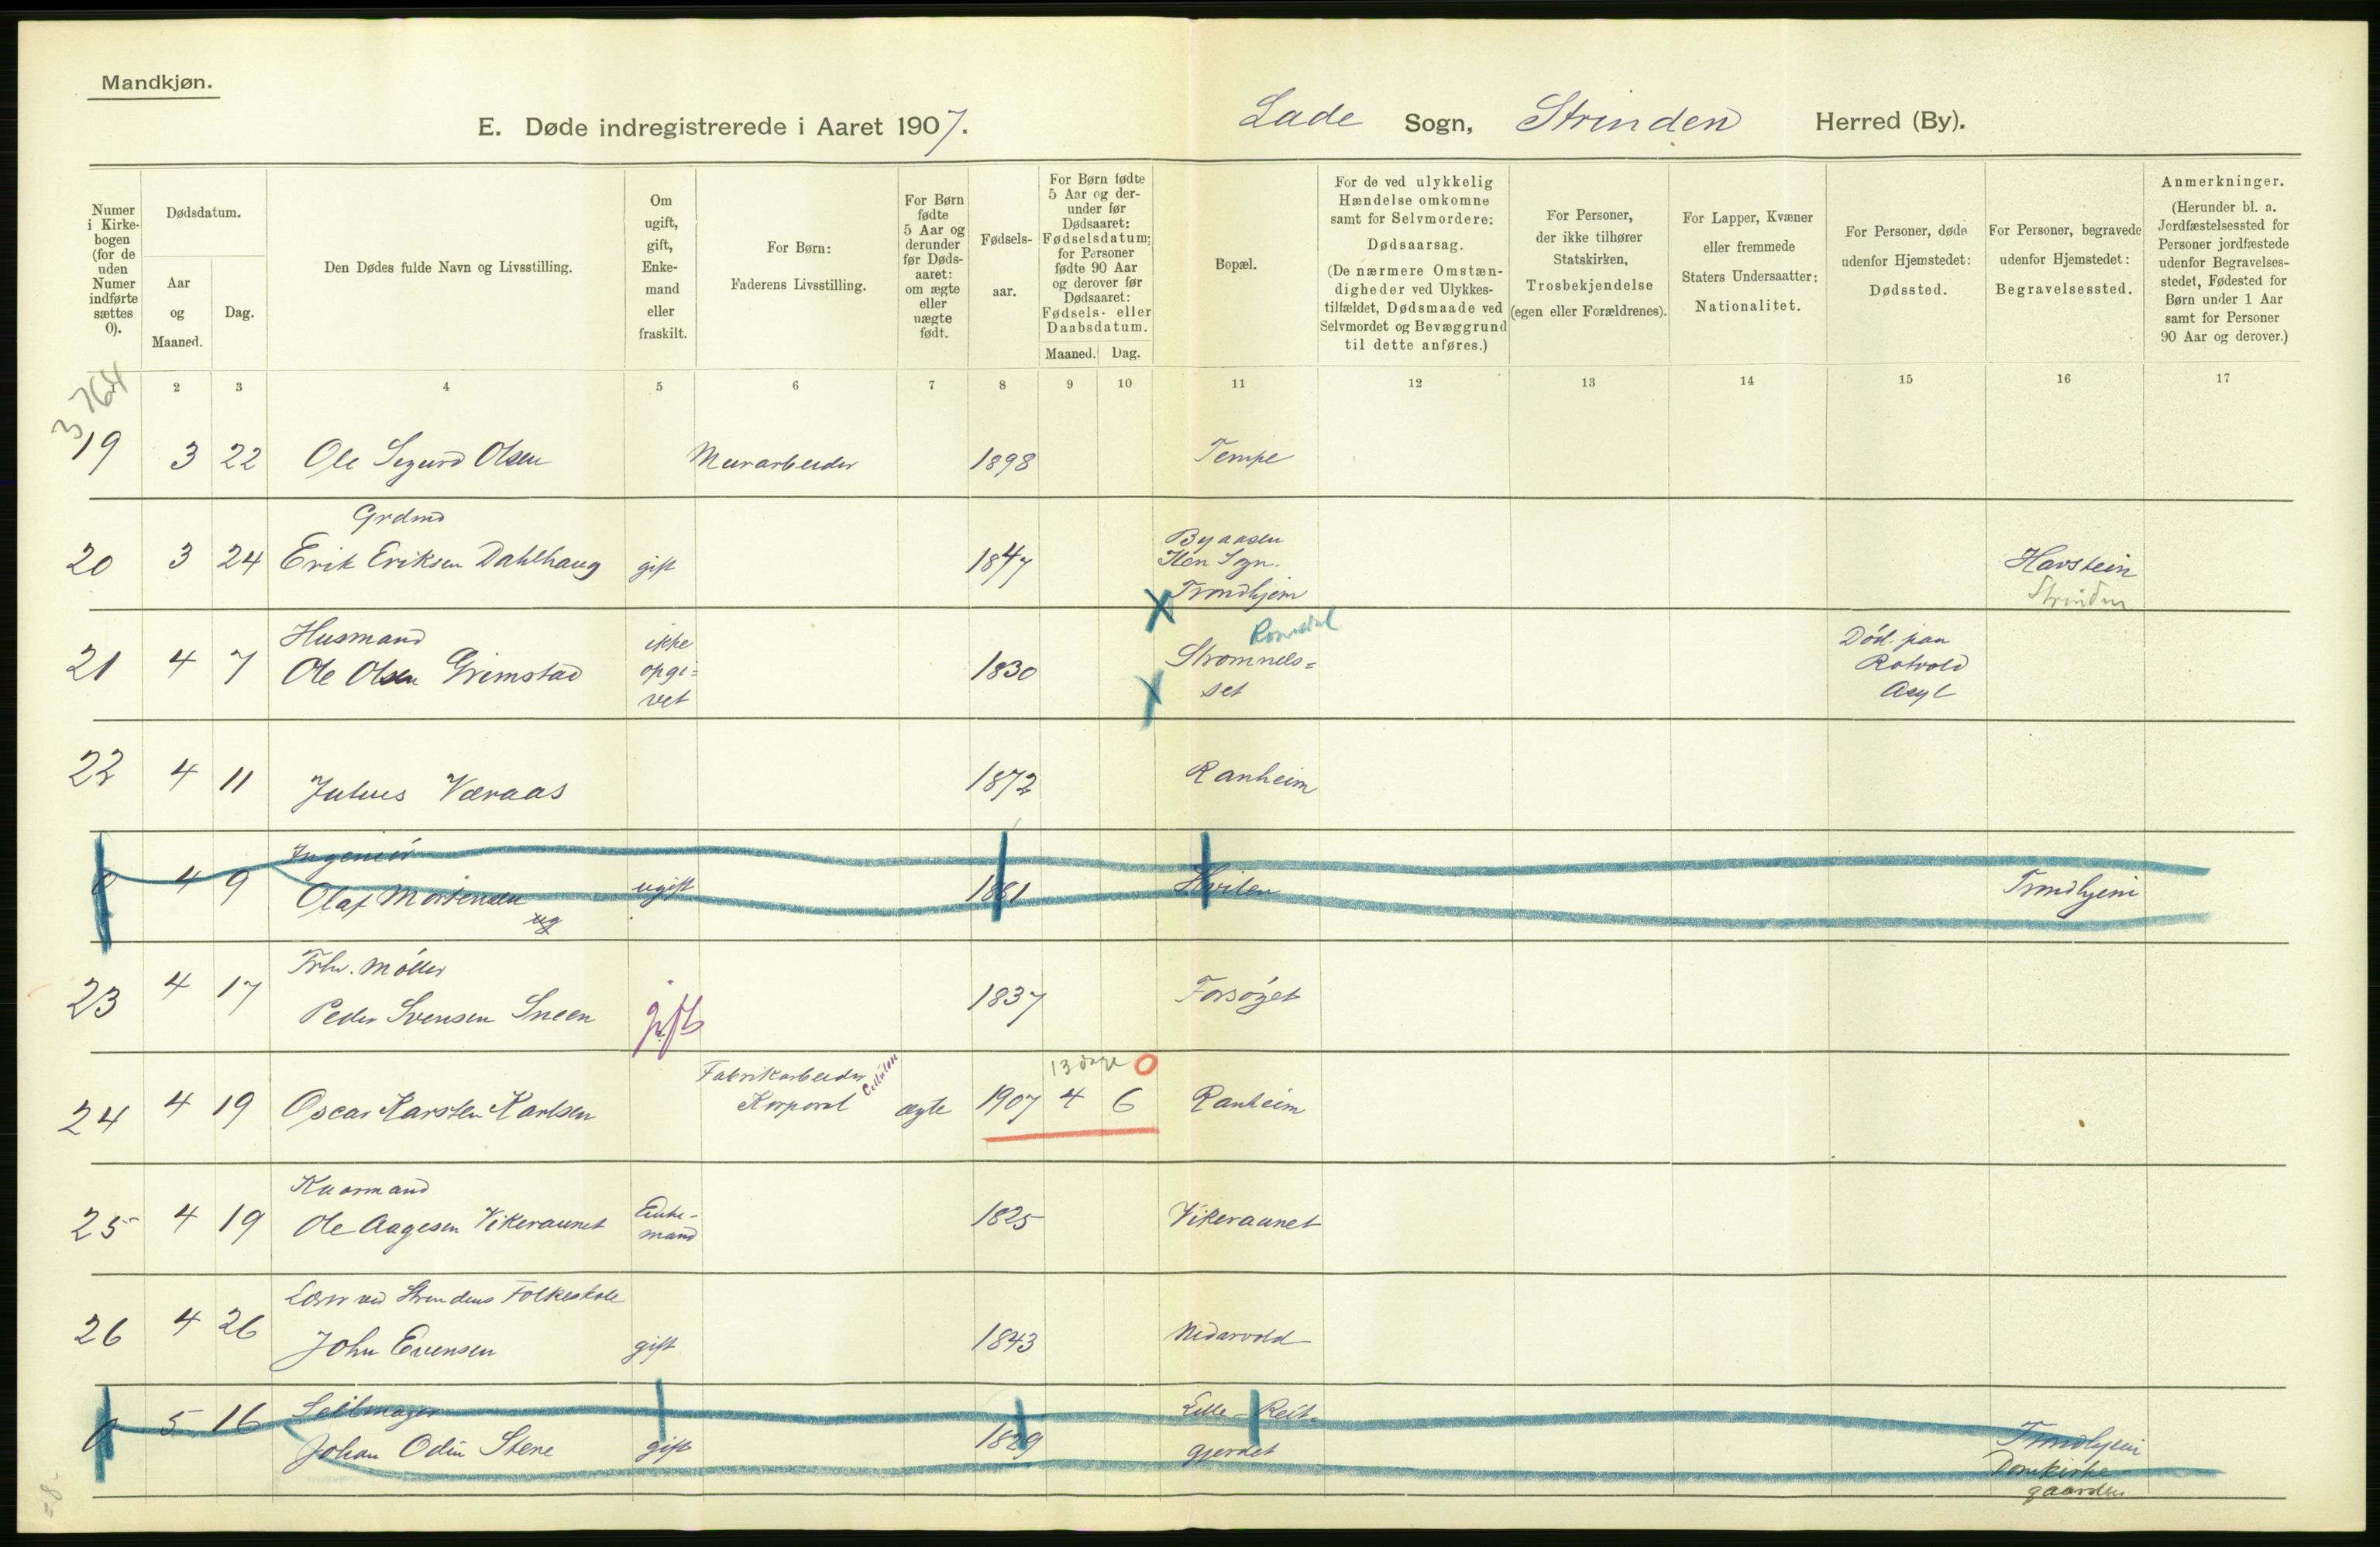 Mandkjøn.
E. Døde indregistrerede i Aaret 1907.
Lade Sogn, Strinden Herred (By).
Numer i Kirkebogen (for de uden Numer indførte sættes 0).
Dødsdatum.
Aar og Maaned.
Dag.
Den Dødes fulde Navn og Livsstilling.
Om ugift, gift, Enkemand eller fraskilt.
For Børn:
Faderens Livsstilling.
For Børn fødte 5 Aar og derunder før Dødsaaret: om ægte eller uægte født.
Fødselsaar.
For Børn fødte 5 Aar og derunder før Dødsaaret: Fødselsdatum; for Personer fødte 90 Aar og derover før Dødsaaret: Fødsels- eller Daabsdatum.
Maaned. Dag.
Bopæl.
For de ved ulykkelig Hændelse omkomne samt for Selvmordere:
Dødsaarsag.
(De nærmere Omstændigheder ved Ulykkestilfældet, Dødsmaade ved Selvmordet og Bevæggrund til dette anføres.)
For Personer, der ikke tilhører Statskirken,
Trosbekjendelse
(egen eller Forældrenes).
For Lapper, Kvæner eller fremmede Staters Undersaatter:
Nationalitet.
For Personer, døde udenfor Hjemstedet:
Dødssted.
For Personer, begravede udenfor Hjemstedet:
Begravelsessted.
Anmerkninger.
(Herunder bl. a. Jordfæstelsessted for Personer jordfæstede udenfor Begravelsesstedet, Fødested for Børn under 1 Aar samt for Personer 90 Aar og derover.)
3764
2 3 4 5 6 7 8 9 10 11 12 13 14 15 16 17
19 3 22 Ole Sigurd Olsen Murarbeider 1898 Tempe
Grdmd
20 3 24 Erik Eriksen Dahlhaug gift 1847 Byaasen
Ilen Sgn.
Trondhjem
Havstein
Strinden
Husmand
21 4 7 Ole Olsen Grimstad ikke opgi=vet 1830 Strømnels=set
Romsdal
Död paa
Rotvold
Asyl
22 4 11 Julius Væraas 1872 Ranheim
Ingeniör
0 4 9 Olaf Mortensen ugift 1881 Hvilen Trondhjem
ug
Fhv. Møller
23 4 17 Peder Svensen Sneen gift 1837 Forsøget
13 dage 0
Fabrikarbeider Cellulose
24 4 19 Oscar Karsten Karlsen Korporal ægte 1907 4 6 Ranheim
Kaarmand
25 4 19 Ole Aagesen Vikeraunet Enke-mand 1825 Vikeraunet
Lærer ved Strindens Folkeskole
26 4 26 John Evensen gift 1843 Nidarvold
Seilmager
0 5 16 Johan Odin Stene gift 1829 Lille-Reit=gjerdet
Trondhjem
Domkirke
gaarden